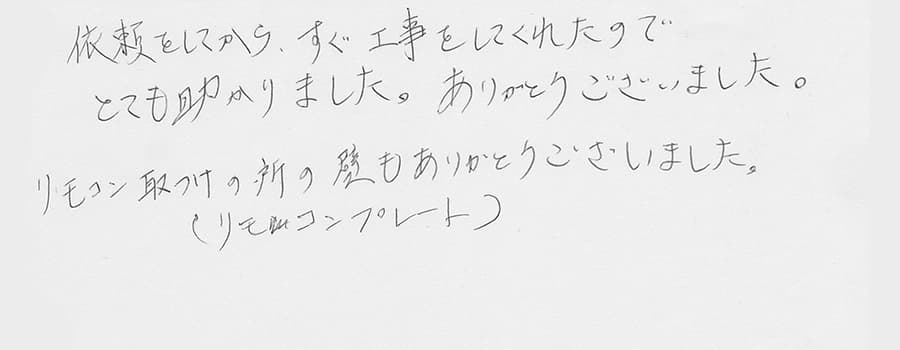 依頼をしてから、すぐ工事をしてくれたので
とても助かりました。ありがとうございました。
リモコン取つけの所の壁もありがとうございました。
(リモコンプレート)